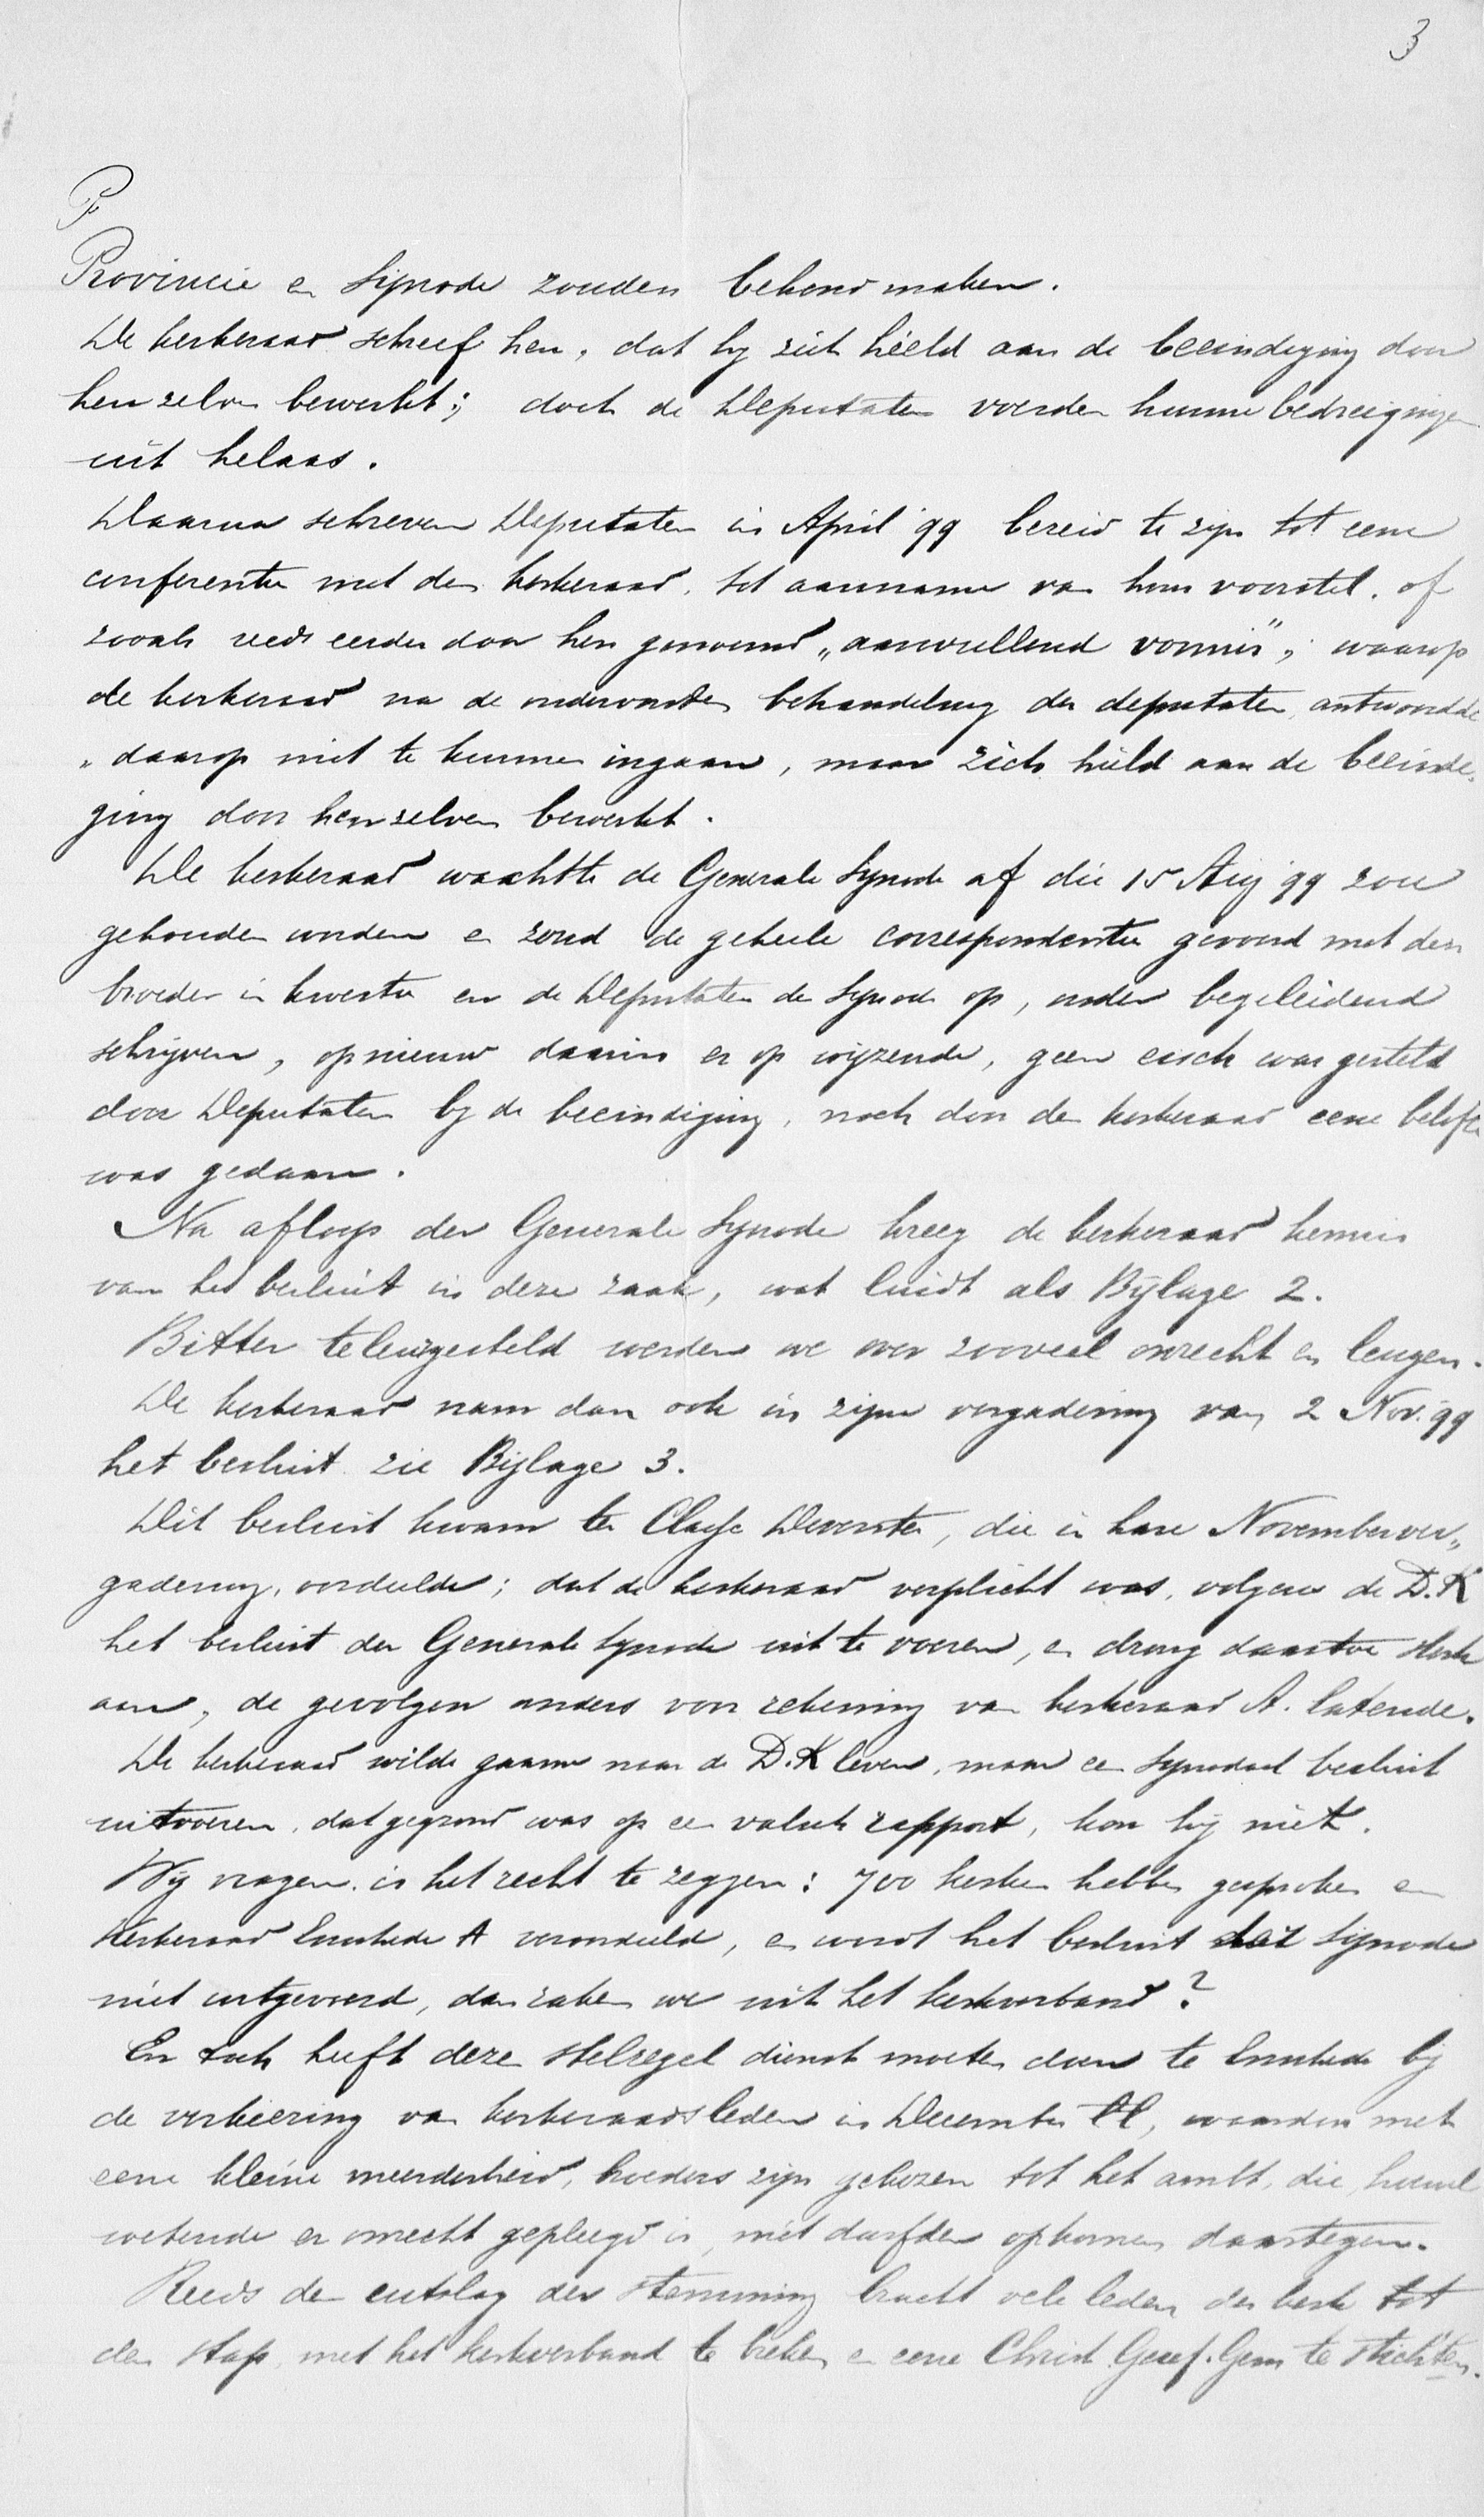 3
P
Provincie en Synode zouden bekend maken.
De kerkeraad schreef hen, dat hij zich hield aan de beeindiging door
hen zelven bewerkt; doch de Deputaten voerden hunne bedreigingen
uit helaas.
Daarna schreven Deputaten in April '99 bereid te zijn tot eene
conferentie met den kerkeraad, tot aanname van hun voorstel, of
zooals reeds eerder door hen genoemd „aanvullend vonnis", waarop
de kerkeraad na de ondervonden behandeling der deputaten, antwoordde
„daarop niet te kunnen ingaan, maar zich hield aan de beeindi-
ging door henzelven bewerkt.
De kerkeraad wachtte de Generale Synode af die 15 Aug '99 zou
gehouden worden en zond de geheele correspondentie gevoerd met den
broeder in kwestie en de Deputaten der Synode op, onder begeleidend
schrijven, opnieuw daarin er op wijzende, geen eisch was gesteld
door Deputaten bij de beeindiging, noch door den kerkeraad eene belofte
was gedaan.
Na afloop der Generale Synode kreeg de kerkeraad kennis
van het besluit in deze zaak, wat luidt als Bijlage 2.
Bitter teleurgesteld werden we over zooveel onrecht en leugen.
De kerkeraad nam dan ook in zijne vergadering van 2 Nov. '99
het besluit zie Bijlage 3.
Dit besluit kwam ter Classe Deventer, die in hare Novemberver„
gadering, oordeelde; dat de kerkeraad verplicht was, volgens de D.K
het besluit der Generale Synode uit te voeren, en drong daartoe sterk
aan, de gevolgen anders voor rekening van kerkeraad A. latende.
De kerkeraad wilde gaarne naar de D.K leven, maar een Synodaal besluit
uitvoeren, dat gegrond was op een valsch rapport, kon hij niet.
Wij vragen, is het recht te zeggen: 700 kerken hebben gesproken en
Kerkeraad Enschede A veroordeeld, en wordt het besluit der Synode
niet uitgevoerd, dan raken we uit het kerkverband?
En toch heeft deze stelregel dienst moeten doen te Enschede bij
de verkiezing van kerkeraadsleden in December ll, waardoor met
eene kleine meerderheid, broeders zijn gekozen tot het ambt, die, hoewel
wetende er onrecht gepleegd is, niet durfden opkomen daartegen.
Reeds den uitslag der stemming bracht vele leden der kerk tot
den stap, met het kerkverband te breken en eene Christ. Geref. Gem te stichten.